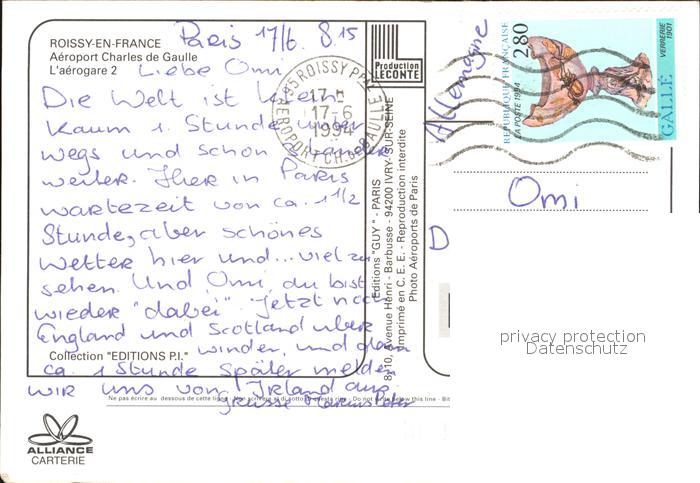 ROISSY-EN-FRANCE
Aéroport Charles de Gaulle
L'aérogare 2
Paris 17/6. 8.15
Liebe Omi
Die Welt ist klein
kaum 1. Stunde unter
wegs und schon wieder
weiter. Hier in Paris
wartezeit von ca. 1 1/2
Stunde, aber schönes
wetter hier und... viel zu
sehen. Und Omi, du bist
wieder "dabei". Jetzt noch
England und Scotland über
winden, und dann
ca. 1 Stunde später melden
wir uns von Irland aus
Grüsse Markus Peter
Collection "EDITIONS P.I."
Ne pas écrire au dessous de cette ligne - Non scrivere di sotto questa riga - Do not write below this line - Bit
ALLIANCE
CARTERIE
Production
LECONTE
95 ROISSY PPAL
17-6
1994
AEROPORT CH. DE GAULLE
Editions "GUY" - PARIS
8-10, Avenue Henri - Barbusse - 94200 IVRY-SUR-SEINE
Imprimé en C. E. E. - Reproduction interdite
Photo Aéroports de Paris
Allemagne
RÉPUBLIQUE FRANÇAISE
LA POSTE 1994
2,80
VERRERIE
1901
GALLÉ
Omi
D
privacy protection
Datenschutz